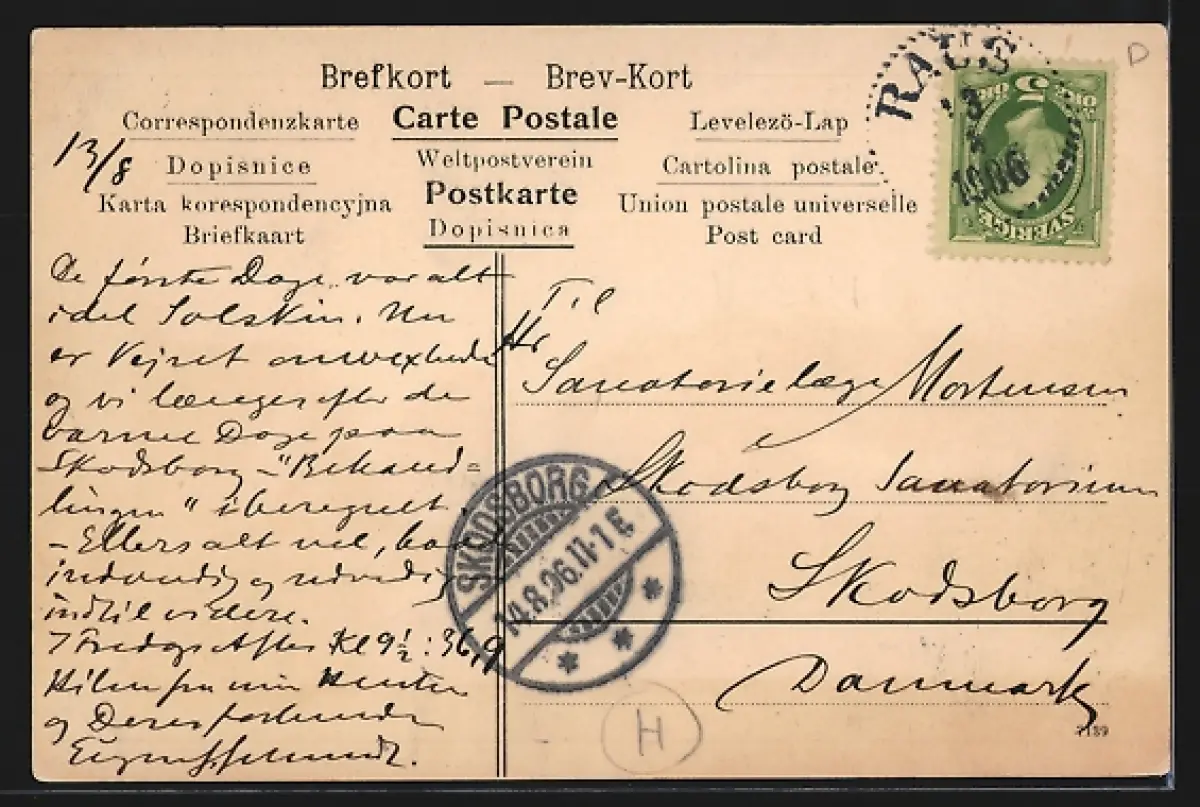 Brefkort — Brev-Kort
Correspondenzkarte Carte Postale Levelezö-Lap
Dopisnice Weltpostverein Cartolina postale.
Karta korespondencyjna Postkarte Union postale universelle
Briefkaart Dopisnica Post card
D
RAUS
13
1906
5
SVERIGE
13/8
De første Dage var alt
idel Solskin. Nu
er Vejret
og vi længes efter de
varme Dage paa
Skodsborg - "Behand=
lingen" iberegnet.
- Ellers alt vel, baade
indvendig og udvendig
indtil videre.
Fredags Aften Kl 9½ : 36,9
Hilsen fra min
og Deres forbundne
Schmidt.
Til
Hr
Sanatorielæge Mortensen
Skodsborg Sanatorium
Skodsborg
Danmark
SKODSBORG
14.8.06.11-1 E
H
7189